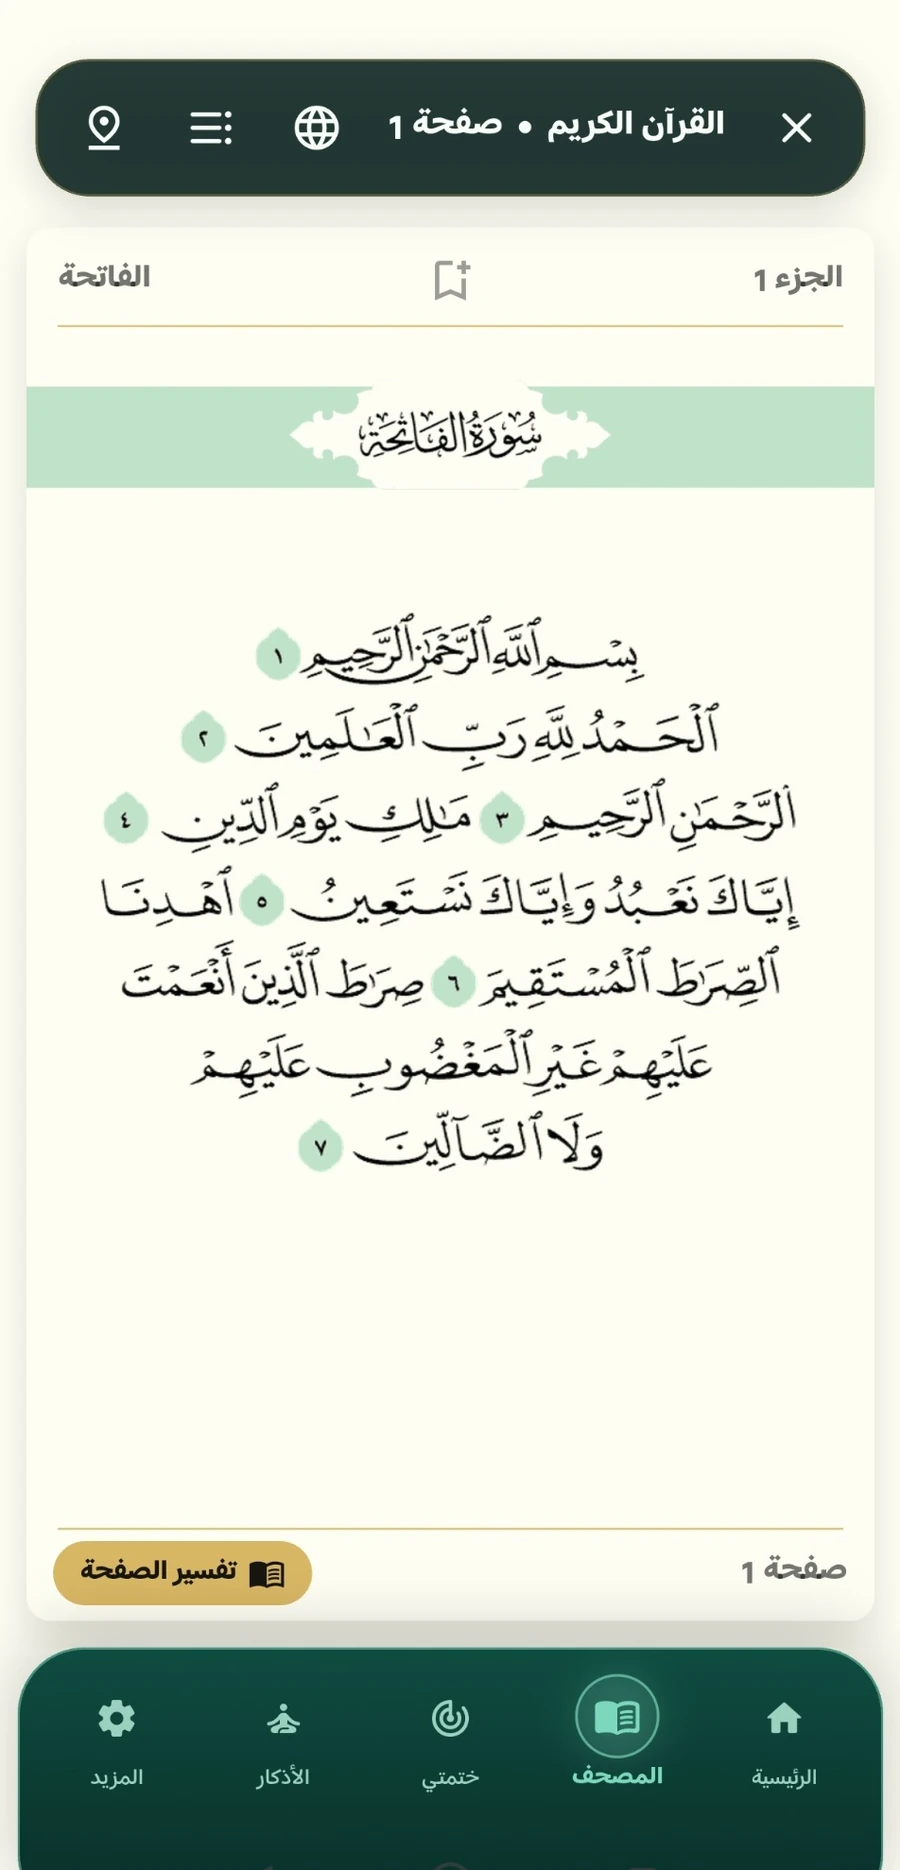 القرآن الكريم • صفحة 1
الجزء 1
الفاتحة
سُورَةُ الفَاتِحَةِ
بِسْمِ ٱللَّهِ ٱلرَّحْمَٰنِ ٱلرَّحِيمِ ١
ٱلْحَمْدُ لِلَّهِ رَبِّ ٱلْعَٰلَمِينَ ٢
ٱلرَّحْمَٰنِ ٱلرَّحِيمِ ٣ مَٰلِكِ يَوْمِ ٱلدِّينِ ٤
إِيَّاكَ نَعْبُدُ وَإِيَّاكَ نَسْتَعِينُ ٥ ٱهْدِنَا
ٱلصِّرَٰطَ ٱلْمُسْتَقِيمَ ٦ صِرَٰطَ ٱلَّذِينَ أَنْعَمْتَ
عَلَيْهِمْ غَيْرِ ٱلْمَغْضُوبِ عَلَيْهِمْ
وَلَا ٱلضَّآلِّينَ ٧
صفحة 1
تفسير الصفحة
الرئيسية
المصحف
ختمتي
الأذكار
المزيد